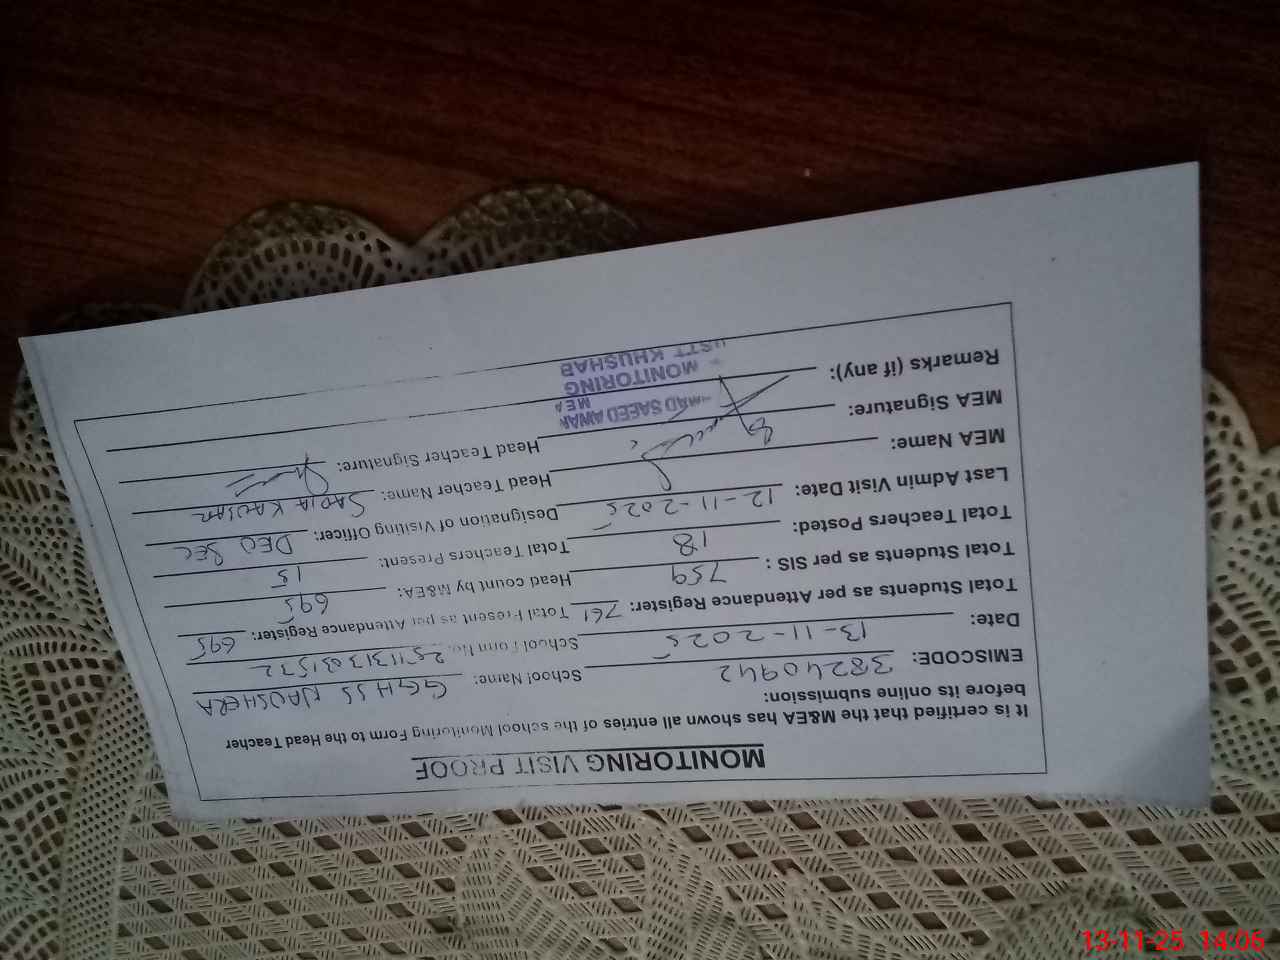 MONITORING VISIT PROOF
It is certified that the M&EA has shown all entries of the school Monitoring Form to the Head Teacher
before its online submission:
EMISCODE: 38240942 School Name: GGHSS NAUSHERA
Date: 13-11-2025 School Form No. 2511131301532
Total Students as per Attendance Register: 761 Total Present as per Attendance Register: 695
Total Students as per SIS : 759 Head count by M&EA: 695
Total Teachers Posted: 18 Total Teachers Present: 15
Last Admin Visit Date: 12-11-2025 Designation of Visiting Officer: DEO SEC
MEA Name: Head Teacher Name: SADIA KAUSAR
MEA Signature: Head Teacher Signature:
Remarks (if any):
SAEED AWAN
MEA
MONITORING
KHUSHAB
13-11-25 14:06